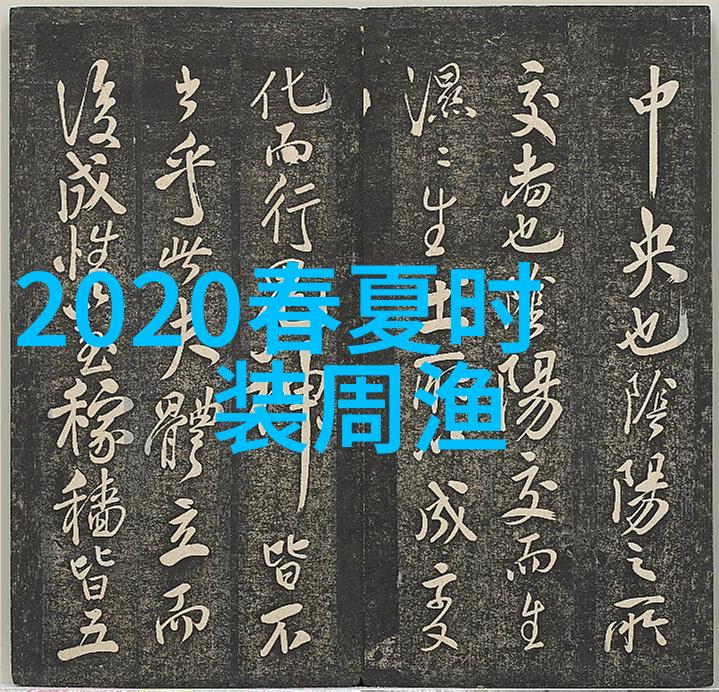 2020春夏时
装周渔
中央也陰陽之所
交者也陰陽交而生
濕〻生土所成变
化而行鬼神皆不
出乎此夫體立而
後成性稼穡皆五